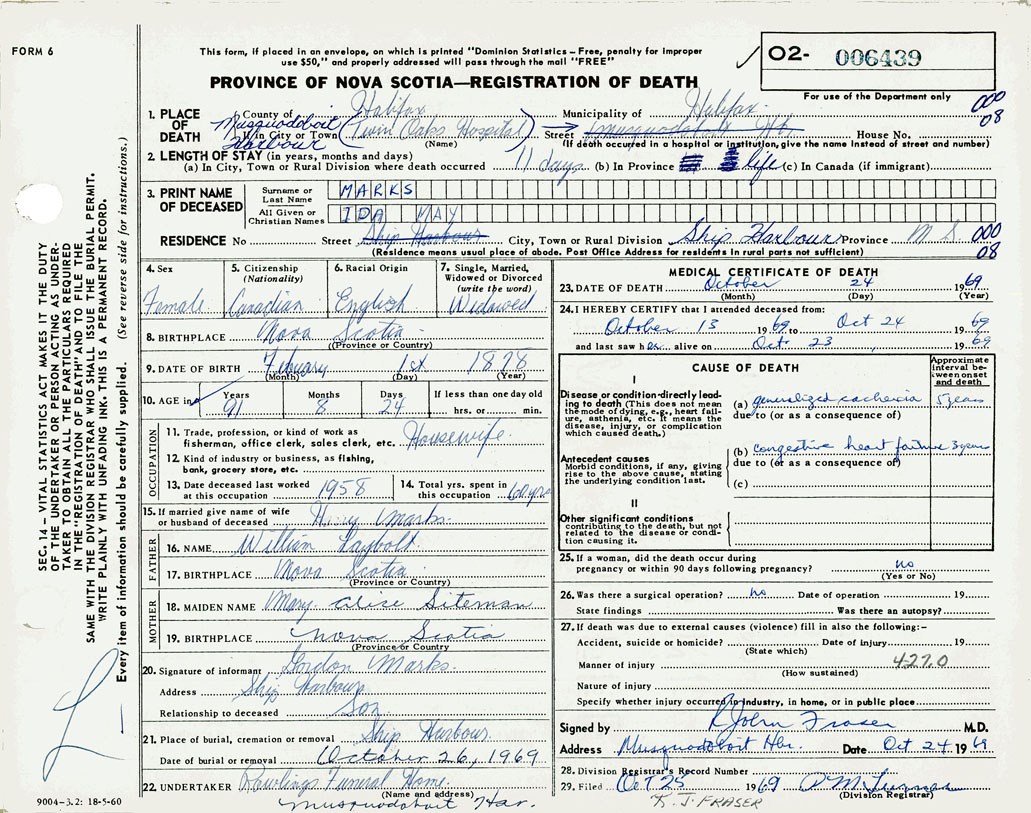 FORM 6
This form, if placed in an envelope, on which is printed "Dominion Statistics – Free, penalty for improper
use $50," and properly addressed will pass through the mail "FREE"
PROVINCE OF NOVA SCOTIA—REGISTRATION OF DEATH
O2- 006439
For use of the Department only
000
08
1. PLACE OF DEATH
County of Halifax Municipality of Halifax
Musquodoboit Harbour
If in City or Town (Twin Oaks Hospital) Street Musquodoboit Hbr. House No.
(Name) (If death occurred in a hospital or institution, give the name instead of street and number)
2. LENGTH OF STAY (in years, months and days)
(a) In City, Town or Rural Division where death occurred 11 days (b) In Province life (c) In Canada (if immigrant)
3. PRINT NAME OF DECEASED
Surname or Last Name MARKS
All Given or Christian Names IDA MAY
RESIDENCE No Street Ship Harbour City, Town or Rural Division Ship Harbour Province N S. 000
08
(Residence means usual place of abode. Post Office Address for residents in rural parts not sufficient)
4. Sex Female
5. Citizenship (Nationality) Canadian
6. Racial Origin English
7. Single, Married, Widowed or Divorced (write the word) Widowed
8. BIRTHPLACE Nova Scotia
(Province or Country)
9. DATE OF BIRTH February 1st 1878
(Month) (Day) (Year)
10. AGE in Years 91 Months 8 Days 24 If less than one day old hrs. or min.
OCCUPATION
11. Trade, profession, or kind of work as
fisherman, office clerk, sales clerk, etc. Housewife.
12. Kind of industry or business, as fishing,
bank, grocery store, etc.
13. Date deceased last worked
at this occupation 1958
14. Total yrs. spent in
this occupation 60 yrs
15. If married give name of wife
or husband of deceased Henry Marks.
FATHER
16. NAME William Laybolt.
17. BIRTHPLACE Nova Scotia
(Province or Country)
MOTHER
18. MAIDEN NAME Mary Alice Siteman
19. BIRTHPLACE Nova Scotia
(Province or Country
20. Signature of informant Gordon Marks.
Address Ship Harbour.
Relationship to deceased Son
21. Place of burial, cremation or removal Ship Harbour.
Date of burial or removal October 26, 1969
22. UNDERTAKER Rawlings Funeral Home.
(Name and address)
Musquodoboit Har.
9004-3.2: 18-5-60
MEDICAL CERTIFICATE OF DEATH
23. DATE OF DEATH October 24 1969
(Month) (Day) (Year)
24. I HEREBY CERTIFY that I attended deceased from:
October 13 1969 to Oct 24 1969
and last saw her alive on Oct. 23, 1969
CAUSE OF DEATH
Approximate interval between onset and death
I
Disease or condition directly leading to death (This does not mean the mode of dying, e.g., heart failure, asthenia, etc. It means the disease, injury, or complication which caused death.)
(a) generalized cachexia 5 years
due to (or as a consequence of)
Antecedent causes
Morbid conditions, if any, giving rise to the above cause, stating the underlying condition last.
(b) congestive heart failure 3 years
due to (or as a consequence of)
(c)
II
Other significant conditions
contributing to the death, but not related to the disease or condition causing it.
25. If a woman, did the death occur during
pregnancy or within 90 days following pregnancy? no
(Yes or No)
26. Was there a surgical operation? no Date of operation 19
State findings Was there an autopsy?
27. If death was due to external causes (violence) fill in also the following:–
Accident, suicide or homicide? Date of injury 19
(State which)
Manner of injury 427.0
(How sustained)
Nature of injury
Specify whether injury occurred in industry, in home, or in public place
Signed by R John Fraser M.D.
Address Musquodoboit Hbr. Date Oct 24 1969
28. Division Registrar's Record Number
29. Filed Oct 25 1969
(Division Registrar)
R. J. FRASER
SEC. 14 – VITAL STATISTICS ACT MAKES IT THE DUTY
OF THE UNDERTAKER OR PERSON ACTING AS UNDER-
TAKER TO OBTAIN ALL THE PARTICULARS REQUIRED
IN THE "REGISTRATION OF DEATH" AND TO FILE THE
SAME WITH THE DIVISION REGISTRAR WHO SHALL ISSUE THE BURIAL PERMIT.
WRITE PLAINLY WITH UNFADING INK. THIS IS A PERMANENT RECORD.
Every item of information should be carefully supplied. (See reverse side for instructions.)